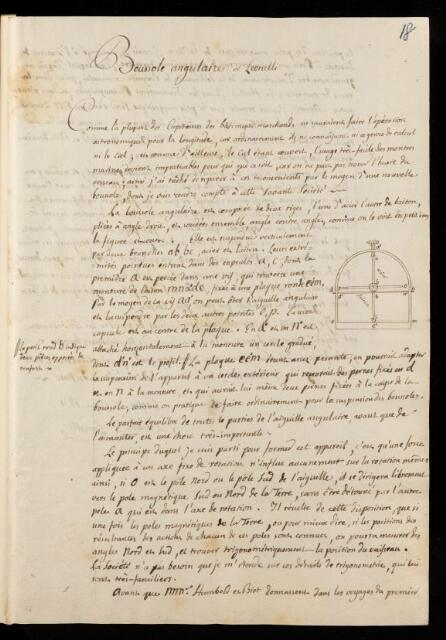 18
Boussole angulaire de Leonelli
Comme la plupart des Capitaines des bâtimens marchands ne sauraient faire l'opération
astronomique pour la longitude, car ordinairement ils ne connaissent ni ce genre de calcul
ni le ciel; et comme d'ailleurs, le Ciel étant couvert, l'usage très-facile des montres
marines devient impraticable pour qui que ce soit, car on ne peut pas trouver l'heure du
vaisseau; ainsi j'ai tâché d'obvier à ces inconvénients par le moyen d'une nouvelle
boussole, dont je vais rendre compte à cette savante Société.
La boussole angulaire est composée de deux tiges, l'une d'acier l'autre de laiton,
pliées à angle droit, et soudées ensemble angle contre angle, comme on le voit en petit dans
la figure ci-contre. Elle est suspendue verticalement
par deux branches ab bc, acier et laiton. Leurs extré-
mités pointues entrent dans des capsules a, c, dont la
première a est percée dans une vis, qui traverse une
monture de laiton, fixée à une plaque ronde eém.
Par le moyen de la vis aa, on peut ôter l'aiguille angulaire
et la suspendre par les deux autres pointes. La vis
capsule est au centre de la plaque. En d et en n est
attaché horizontalement à la monture un cercle gradué,
dont dn est le profil. La plaque eém étant aussi pesante, on pourrait adapter
la suspension de l'appareil à un cercle extérieur qui reposerait des pivots fixés en d
et en n à la monture, et qui aurait lui même deux pivots fixés à la caisse de la
boussole, comme on pratique de faire ordinairement pour la suspension des boussoles.
Le parfait équilibre de toutes les parties de l'aiguille angulaire, avant que de
l'aimanter, est une chose très-importante.
Le principe duquel je suis parti pour former cet appareil, c'est qu'une force
appliquée à un axe fixe de rotation n'influe aucunement sur la rotation même;
ainsi, si o est le pôle Nord ou le pôle Sud de l'aiguille, il se dirigera librement
vers le pole magnétique Sud ou Nord de la Terre, sans être détourné par l'autre
pole a qui est dans l'axe de rotation. Il résulte de cette disposition, que si
une fois les poles magnétiques de la Terre, ou pour mieux dire, si les positions des
résultantes des actions de chacun de ces poles sont connues, on pourra mesurer des
angles Nord et Sud, et trouver trigonométriquement la position du vaisseau.
La Société n'a pas besoin que je m'étende sur ces détails de trigonométrie, qui lui
sont très-familiers.
Avant que MM.rs Humbold et Biot donnassent dans les voyages du premier